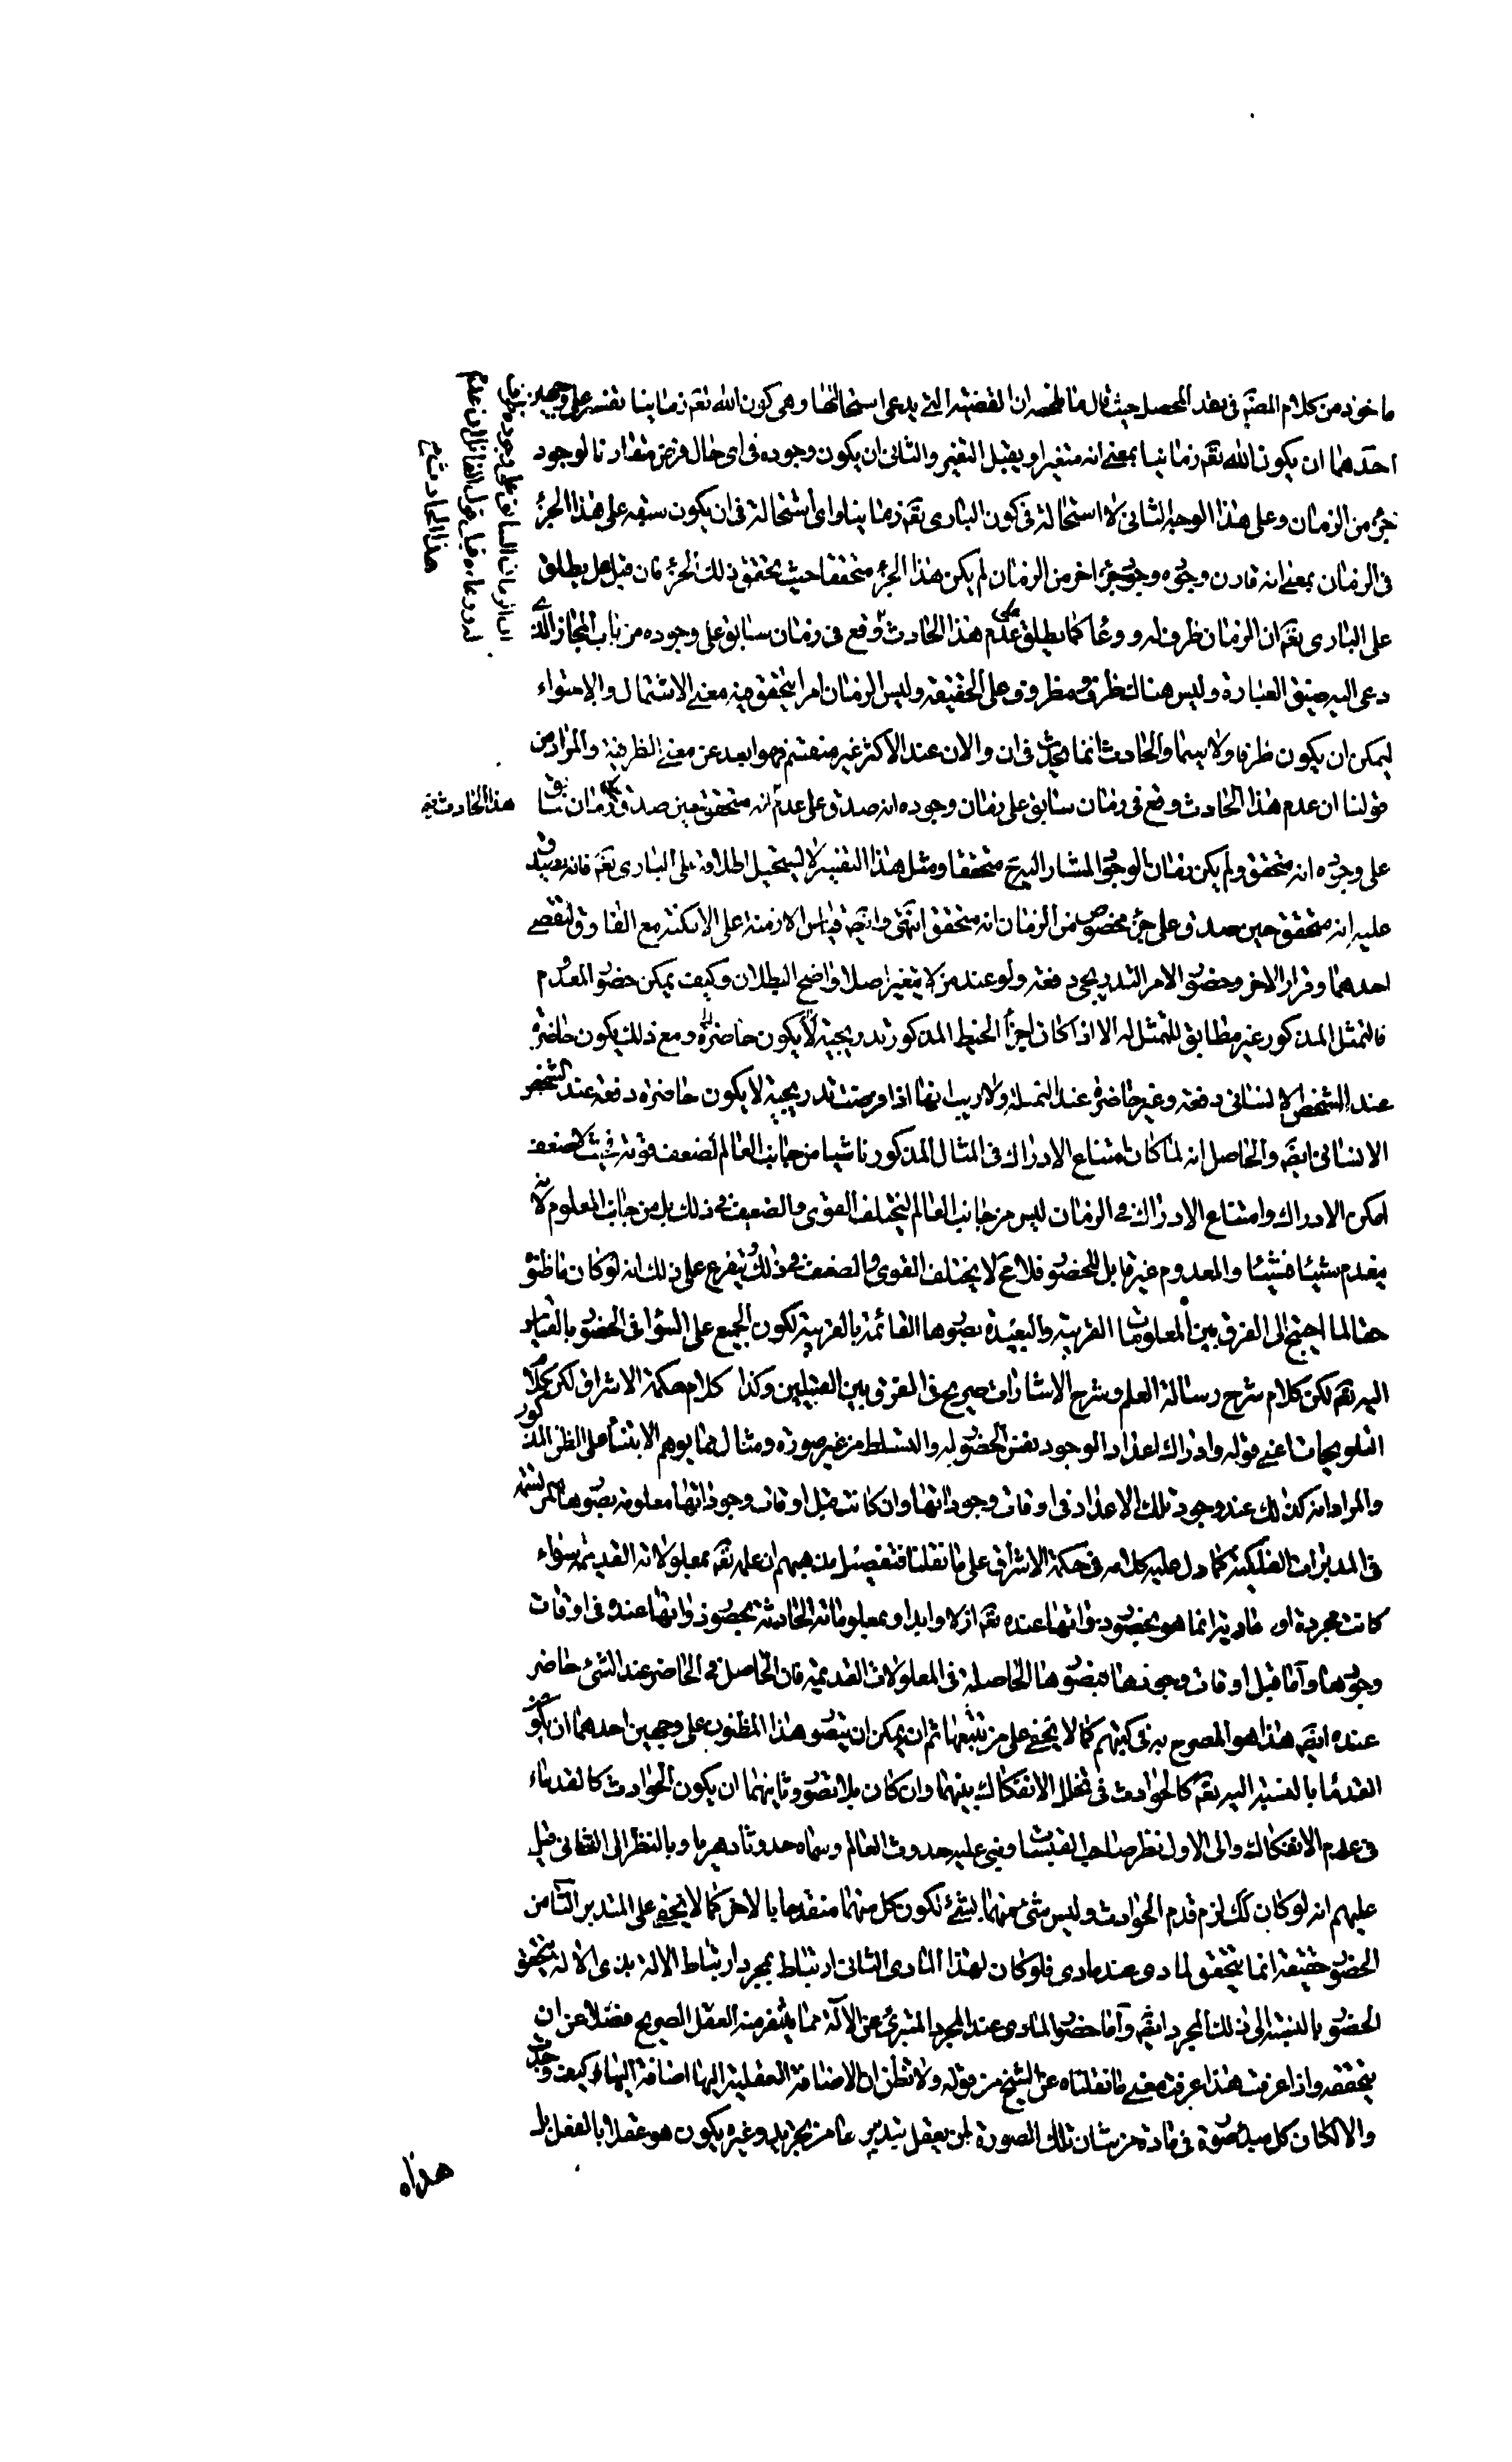 ماخوذ من كلام المصنف فى نقد المحصل حيث قال ما ملخصه ان القضية التى يدعى استحالتها وهى كون الله تقم زمانيا تفسر على وجهين
احدهما ان يكون الله تقم زمانيا بمعنى انه متغير او يقبل التغير والثانى ان يكون وجوده فى اى حال فرض مقارنا لوجود
جزء من الزمان وعلى هذا الوجه الثانى لا استحالة فى كون البارى تقم زمانيا واى استحالة فى ان يكون سبقه على هذا الجزء
فى الزمان بمعنى انه قارن وجوده وجود جزء اخر من الزمان لم يكن هذا الجزء متحققا حيث تحقق ذلك الجزء فان قيل هل يطلق
على البارى تقم ان الزمان ظرف له ووعا كما يطلق على عدم هذا الحادث وقع فى زمان سابق على وجوده من باب المجاز الذى
دعى اليه ضيق العبارة وليس هناك ظرف ومظروف على الحقيقة وليس الزمان امرا يتحقق فيه معنى الاشتمال والاحتواء
ليمكن ان يكون ظرفا ولا سيما والحادث انما يحدث فى ان والان عند الاكثر غير منقسم فهو ابعد عن معنى الظرفية والمراد من
قولنا ان عدم هذا الحادث وقع فى زمان سابق على زمان وجوده انه صدق على عدمه انه متحقق حين صدق زمان سابق
على وجوده انه متحقق ولم يكن زمان الوجود المشار اليه متحققا ومثل هذا التفسير لا يستحيل اطلاقه على البارى تقم فانه يصدق
عليه انه متحقق حين صدق على جزء مخصوص من الزمان انه متحقق انتهى واتجه قياس الازمنة على الامكنة مع الفارق لتقضى
احدهما وقرار الاخر وحضور الامر التدريجى دفعة ولو عند من لا يتغير اصلا واضح البطلان وكيف يمكن حضور المعدوم
فالتمثل المذكور غير مطابق للتمثل له الا اذا كان اجزأ الخيط المذكور تدريجية لا يكون حاضرة ومع ذلك يكون حاضرة
عند الشخص الانسانى دفعة وغير حاضرة عند النملة ولا ريب انها اذا فرضت تدريجية لا يكون حاضرة دفعة عند الشخص
الانسانى ايضه والحاصل انه لما كان امتناع الادراك فى المثال المذكور ناشيا من جانب العالم لضعف قوته فحيث لا ضعف
امكن الادراك وامتناع الادراك فى الزمان ليس من جانب العالم ليختلف القوى والضعيف فى ذلك بل من جانب المعلوم لانه
ينعدم شيئا فشيئا والمعدوم غير قابل للحضور فلا مح لا يختلف القوى والضعيف فى ذلك ويتفرع على ذلك انه لو كان ما ظنوه
حقا لما احتيج الى الفرق بين المعلومات القريبة والبعيدة بصورها القائمة بالقريبة لكون الجميع على السواء فى الحضور بالقياس
اليه تقم لكن كلام شرح رسالة العلم وشرح الاشارات صريح فى الفرق بين القبيلين وكذا كلام حكمة الاشراق لكن كلام
التلويحات اعنى قوله وادراك اعداد الوجود نفس الحضور له والتسلط من غير صورة ومثال مما يوهم الابتناء على الظن المذكور
والمراد انه كذلك عند وجود تلك الاعداد فى اوقات وجوداتها وان كانت قبل اوقات وجوداتها معلومة بصورها المرتسمة
فى المدبرات الفلكية كما دل عليه كلامه فى حكمة الاشراق على ما نقلنا فتفصيل مذهبهم ان علمه تقم بمعلولاته القديمة سواء
كانت مجردة او مادية انما هو بحضور ذواتها عنده تقم ازلا وابدا وبمعلولاته الحادثة بحضور ذواتها عنده فى اوقات
وجودها واما قبل اوقات وجودها فبصورها الحاصلة فى المعلولات القديمة فان الحاصل فى الحاضر عند الشئ حاضر
عنده ايضه هذا هو المصرح به فى كتبهم كما لا يخفى على من تتبعها ثم انه يمكن ان يتصور هذا المظنون على وجهين احدهما ان يكون
القدماء بالنسبة اليه تقم كالحوادث فى تخلل الانفكاك بينهما وان كان بلا تصور وثانيهما ان يكون الحوادث كالقدماء
فى عدم الانفكاك والى الاول نظر صاحب القبسات وبنى عليه حدوث العالم وسماه حدوثا دهريا وبالنظر الى الثانى قيل
عليهم انه لو كان كك لزم قدم الحوادث وليس شئ منهما بشئ لكون كل منهما منقدما بالاخر كما لا يخفى على المتدبر التامن
الحضور حقيقة انما يتحقق لمادى عند مادى فلو كان لهذا المادى الثانى ارتباط بمجرد ارتباط الالة بذى الالة يتحقق
الحضور بالنسبة الى ذلك المجرد ايضه واما حضور المادى عند المجرد المتبرئ عن الآلة مما يتنفر منه العقل الصريح فضلا عن ان
يتحققه واذا عرفت هذا عرفت معنى ما نقلناه عن الشيخ من قوله ولا تظن ان الاضافة العقلية اليها اضافة اليها كيف وجدت
والا لكان كل مبدء صورة فى مادة من شان تلك الصورة ان يعقل بتدبير ما من تجريد وغيره يكون هو عقلا بالفعل بل
هذاه
هذا الحادث فيه
له ووعاءه قيل قول القائل ان عدم
هذا الحادث مح